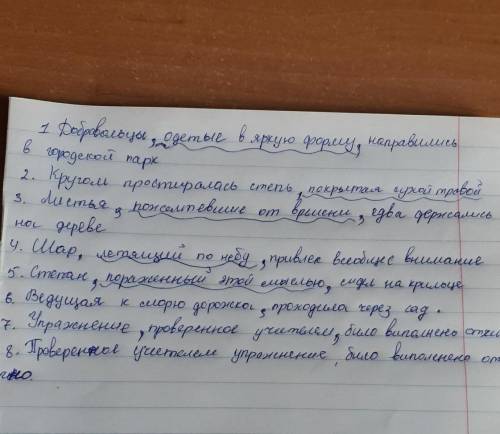 1 Добровольцы, одетые в яркую форму, направились
в городской парк
2. Кругом простиралась степь, покрытая сухой травой
3. Листья, пожелтевшие от времени, едва держались
на дереве
4. Шар, летящий по небу, привлек всеобщее внимание
5. Степан, пораженный этой мыслью, сидел на крыльце
6. Ведущая к морю дорожка, проходила через сад.
7. Упражнение, проверенное учителем, было выполнено отли
8. Проверенное учителем упражнение, было выполнено от
но.